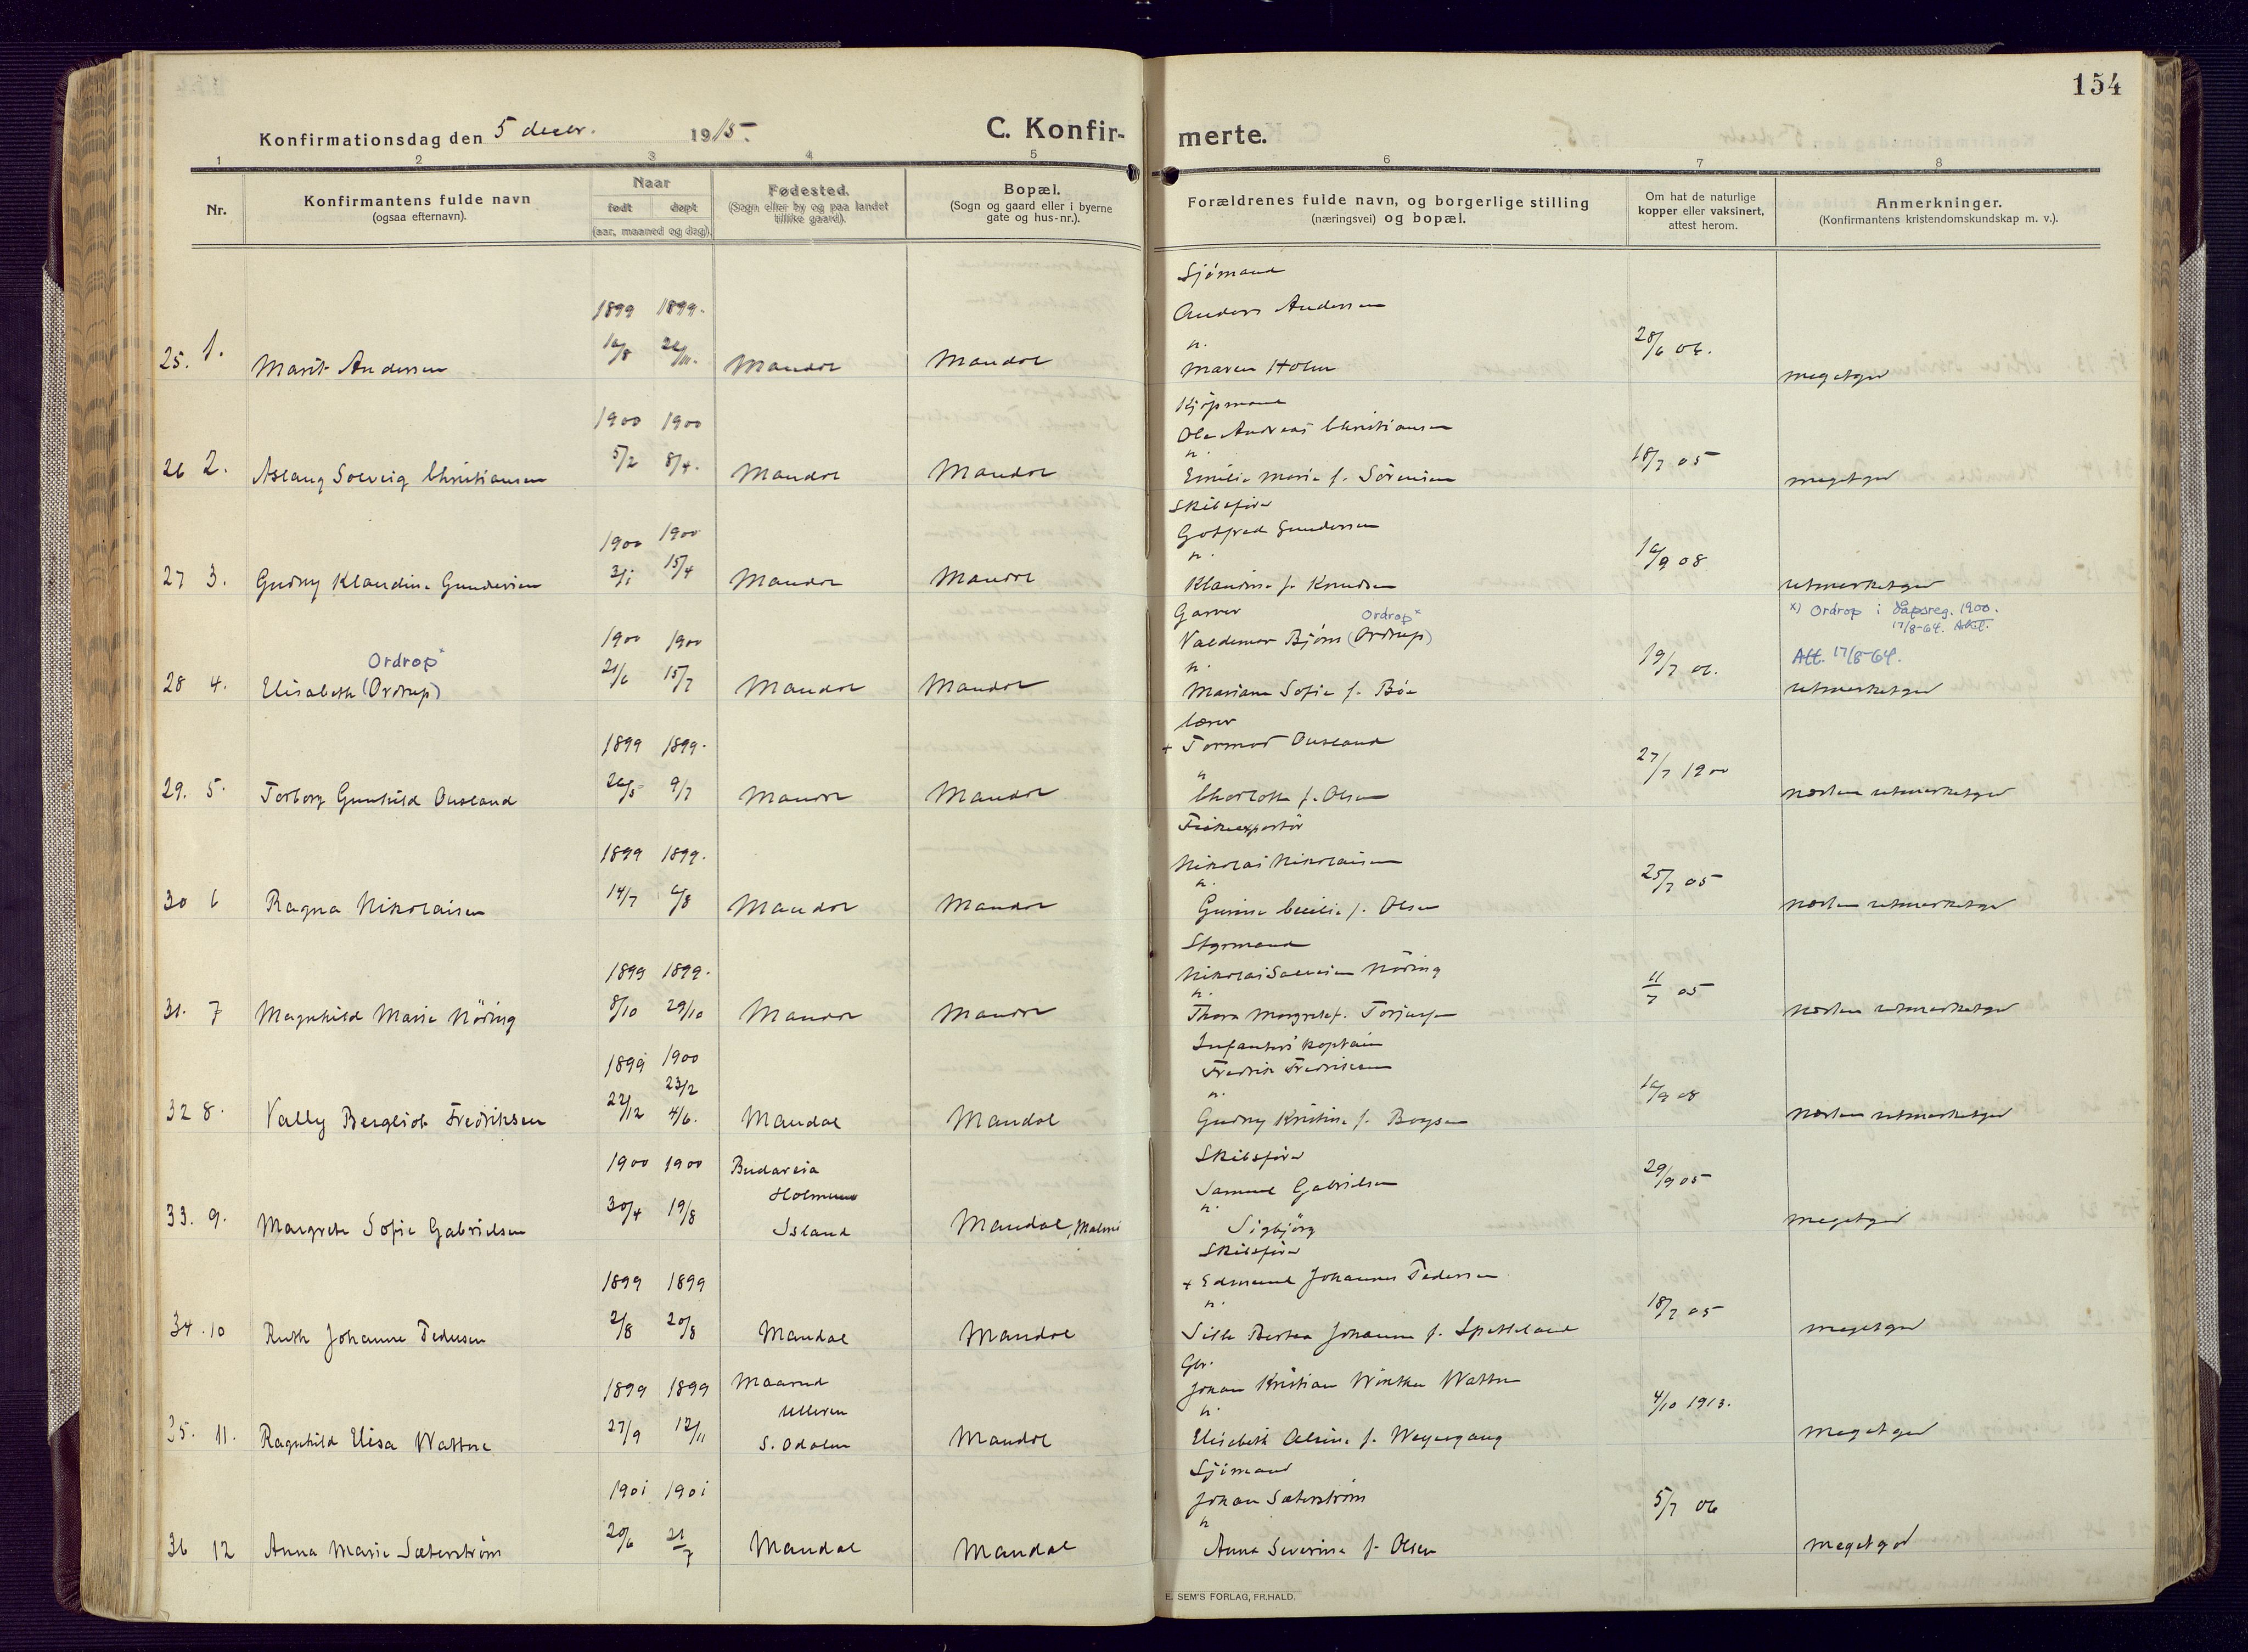 154
Konfirmationsdag den 5 decbr. 1915.
C. Konfir-merte.
1 2 3 4 5 6 7 8
Nr.
Konfirmantens fulde navn
(ogsaa efternavn).
Naar
født døpt
(aar, maaned og dag).
Fødested.
(Sogn eller by og paa landet
tillike gaard).
Bopæl.
(Sogn og gaard eller i byerne
gate og hus-nr.).
Forældrenes fulde navn, og borgerlige stilling
(næringsvei) og bopæl.
Om hat de naturlige
kopper eller vaksinert,
attest herom.
Anmerkninger.
(Konfirmantens kristendomskundskap m. v.).
Sjømand
1899 1899.
Anders Andersen
25. 1. Marit Andersen Mandal Mandal
Maren Holm
28/6 06.
megetgod
Kjøpmand
1900 1900
Ole Andreas Christiansen
26 2. Aslaug Solveig Christiansen 5/2 8/4. Mandal Mandal
Emilie Marie f. Sørensen
18/7 05
megetgod
Skibsfører
1900 1900
Gotfred Gundersen
27 3. Gudny Klaudine Gundersen 3/1 15/4 Mandal Mandal
Klaudine f. Knudsen
16/9 08
utmerketgod
Garver
Ordrop x
x) Ordrop i dåpsreg. 1900.
17/8-64.
1900 1900
Valdemar Bjørn (Ordrup)
Ordrop x
Att. 17/8-64.
28 4. Elisabeth (Ordrup) 21/6 15/7 Mandal Mandal
Mariane Sofie f. Bøe
19/7 06.
utmerketgod
lærer
1899 1899.
+ Tormod Ousland
29. 5. Torborg Gunhild Ousland 26/5 9/7 Mandal Mandal
Charlotte f. Olsen
27/7 1900
næsten utmerketgod
Fiskeexportør
1899 1899.
Nikolai Nikolaisen
30 6 Ragna Nikolaisen 14/7 6/8 Mandal Mandal
Gurine Cecilie f. Olsen
25/7 05
næsten utmerketgod
Styrmand
1899 1899.
Nikolai Salvesen Nöring
31. 7 Magnhild Marie Nöring 8/10 29/10 Mandal Mandal
Thora Margrete f. Torjusen
11/7 05
næsten utmerketgod
Infanteri kaptein
1899 1900
Fredrik Fredriksen
23/2
32 8. Vally Bergliot Fredriksen 22/12 4/6. Mandal Mandal
Gudny Kristine f. Boysen
16/9 08
næsten utmerketgod
Skibsfører
1900 1900 Budareia
Samuel Gabrielsen
29/9 05
33. 9. Margrete Sofie Gabrielsen 30/4 19/8 Island Mandal, Malmö
Sigbjörg
megetgod
Skibsfører
1899 1899
+ Edmund Johannes Pedersen
34. 10 Ruth Johanne Pedersen 2/8 20/8 Mandal Mandal
Sille Bertea Johanne f. Spetteland
18/7 05
megetgod
Gbr.
1899 1899 Maarud
Johan Kristian Winther Wattne
Ulleren
35. 11. Ragnhild Elisa Wattne 27/9 12/11 S. Odalen Mandal
Elisabeth Oline f. Weyergang
4/10 1913.
megetgod
Sjømand
1901 1901
Johan Sæterstrøm
36 12 Anna Marie Sæterstrøm 20/6 21/7 Mandal Mandal
Anna Severine f. Olsen
5/7 06
megetgod
E. SEM'S FORLAG, FR.HALD.